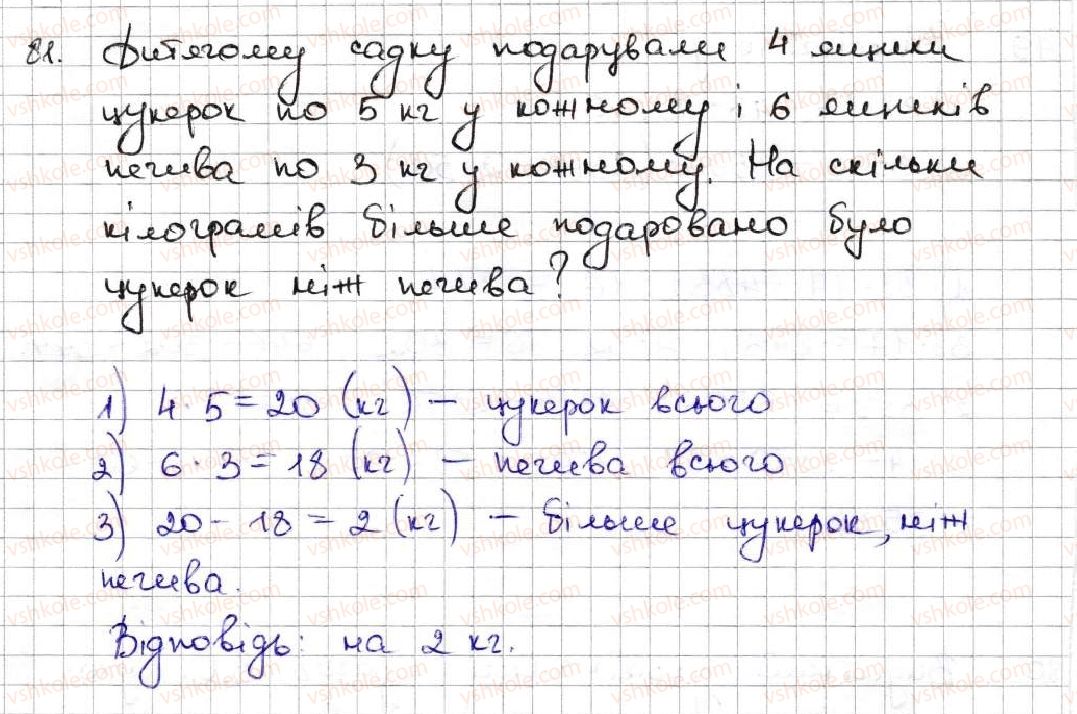 81. Дитячому садку подарували 4 ящики
цукерок по 5 кг у кожному і 6 ящиків
печива по 3 кг у кожному. На скільки
кілограмів більше подаровано було
цукерок ніж печива?
1) 4 · 5 = 20 (кг) – цукерок всього
2) 6 · 3 = 18 (кг) – печива всього
3) 20 - 18 = 2 (кг) – більше цукерок, ніж
печива.
Відповідь: на 2 кг.